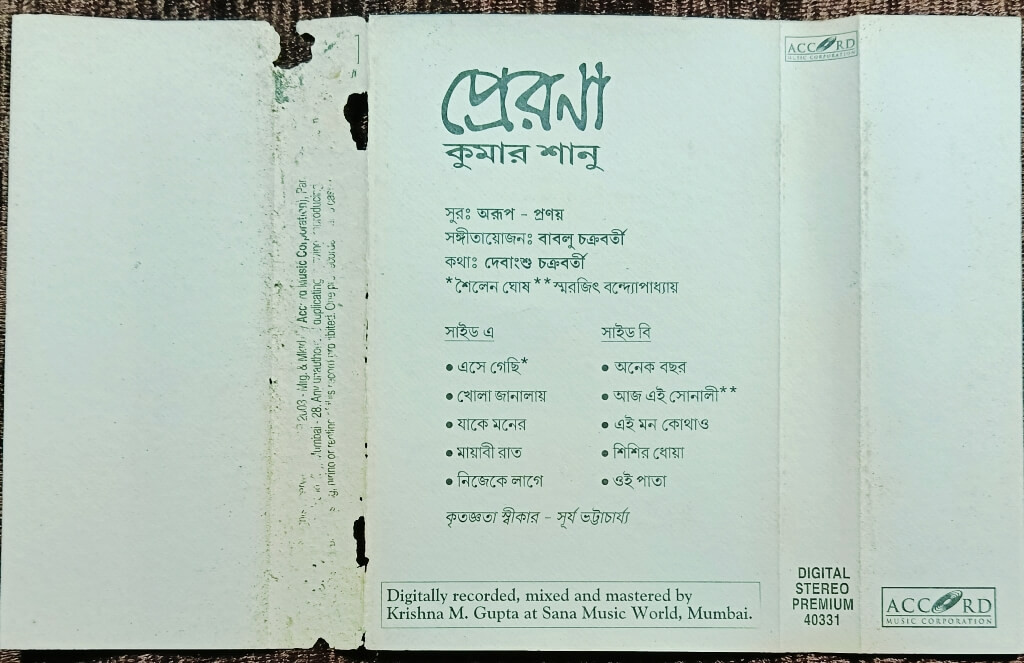 প্রেরণা
কুমার শানু
সুরঃ অরূপ – প্রণয়
সঙ্গীতায়োজনঃ বাবলু চক্রবর্তী
কথাঃ দেবাংশু চক্রবর্তী
*শৈলেন ঘোষ **স্মরজিৎ বন্দ্যোপাধ্যায়
সাইড এ
• এসে গেছি*
• খোলা জানালায়
• যাকে মনের
• মায়াবী রাত
• নিজেকে লাগে
সাইড বি
• অনেক বছর
• আজ এই সোনালী**
• এই মন কোথাও
• শিশির ধোয়া
• ওই পাতা
কৃতজ্ঞতা স্বীকার – সূর্য ভট্টাচার্য্য
Digitally recorded, mixed and mastered by
Krishna M. Gupta at Sana Music World, Mumbai.
ACCORD
MUSIC CORPORATION
DIGITAL
STEREO
PREMIUM
40331
ACCORD
MUSIC CORPORATION
2003 - Mfg. & Music Corporation),
Mumbai - 28. Any duplicating,
of this record prohibited. One